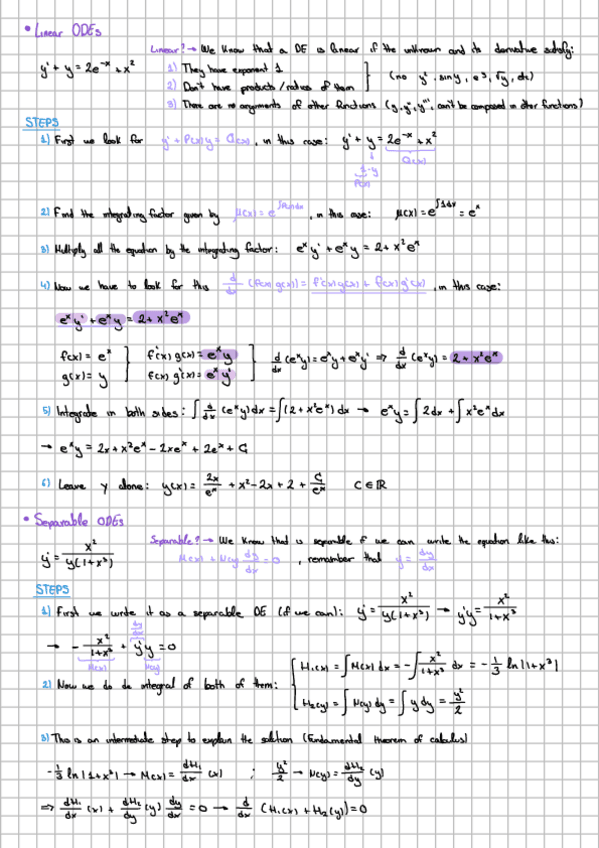 • Linear ODEs
Linear? → We know that a DE is linear if the unknown and its derivative satisfy:
y' + y = 2e^-x + x^2
1) They have exponent 1
2) Don't have products/ratios of them
(no y^2, sin y, e^y, √y, etc)
3) There are no arguments of other functions (y, y', y'', can't be composed in other functions)
STEPS
1) First we look for y' + P(x)y = Q(x), in this case: y' + y = 2e^-x + x^2
1·y
P(x)
Q(x)
2) Find the integrating factor given by μ(x) = e^∫P(x)dx, in this case: μ(x) = e^∫1dx = e^x
3) Multiply all the equation by the integrating factor: e^x y' + e^x y = 2 + x^2 e^x
4) Now we have to look for this d/dx (f(x) g(x)) = f'(x) g(x) + f(x) g'(x), in this case:
e^x y' + e^x y = 2 + x^2 e^x
f(x) = e^x } f'(x) g(x) = e^x y
g(x) = y } f(x) g'(x) = e^x y'
d/dx (e^x y) = e^x y + e^x y' ⇒ d/dx (e^x y) = 2 + x^2 e^x
5) Integrate in both sides: ∫ d/dx (e^x y) dx = ∫(2 + x^2 e^x) dx → e^x y = ∫2dx + ∫x^2 e^x dx
→ e^x y = 2x + x^2 e^x - 2xe^x + 2e^x + C
6) Leave y alone: y(x) = 2x/e^x + x^2 - 2x + 2 + C/e^x C ∈ ℝ
• Separable ODEs
Separable? → We know that is separable if we can write the equation like this:
y' = x^2/y(1+x^3)
M(x) + N(y) dy/dx = 0, remember that y' = dy/dx
STEPS
1) First we write it as a separable DE (if we can): y' = x^2/y(1+x^3) → y'y = x^2/1+x^3
dy/dx
→ - x^2/1+x^3 + y'y = 0
M(x) N(y)
2) Now we do de integral of both of them: { H₁(x) = ∫M(x) dx = -∫ x^2/1+x^3 dx = -1/3 ln|1+x^3|
H₂(y) = ∫N(y) dy = ∫ y dy = y^2/2
3) This is an intermediate step to explain the solution (Fundamental theorem of calculus)
-1/3 ln|1+x^3| → M(x) = dH₁/dx (x) ; y^2/2 → N(y) = dH₂/dy (y)
⇒ dH₁/dx (x) + dH₂/dy (y) dy/dx = 0 → d/dx (H₁(x) + H₂(y)) = 0